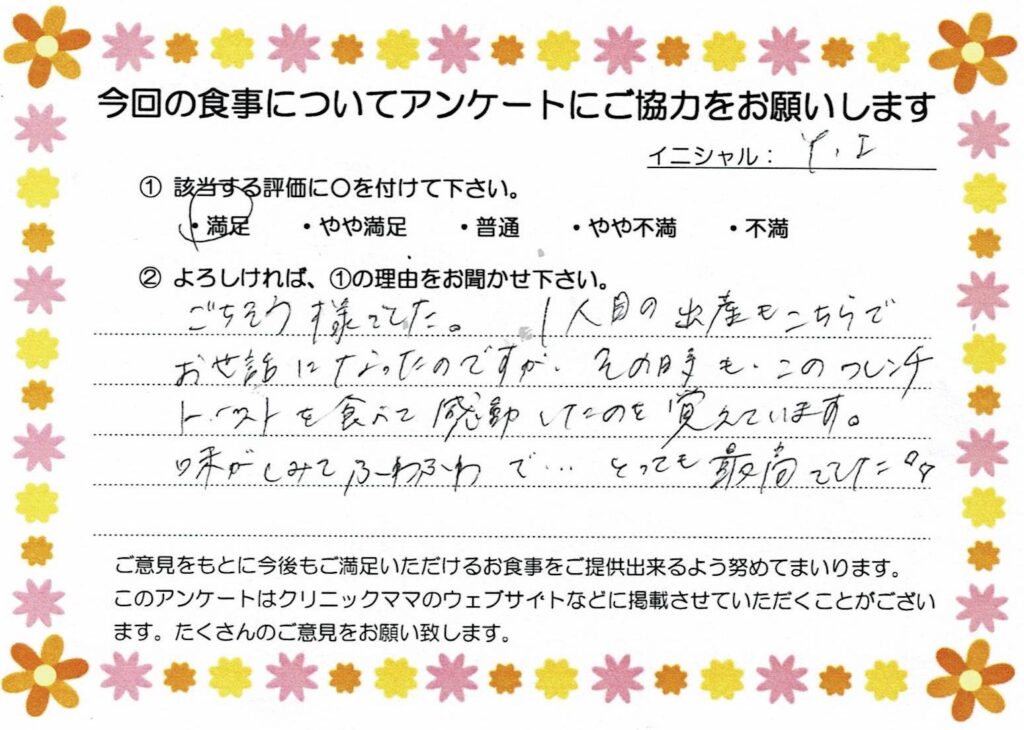 今回の食事についてアンケートにご協力をお願いします
イニシャル： Y.I
① 該当する評価に〇を付けて下さい。
・満足 ・やや満足 ・普通 ・やや不満 ・不満
② よろしければ、①の理由をお聞かせ下さい。
ごちそう様でした。 1人目の出産もこちらで
お世話になったのですが、その時も、このフレンチ
トーストを食べて感動したのを覚えています。
味がしみてふーわふわで… とっても最高でした
ご意見をもとに今後もご満足いただけるお食事をご提供出来るよう努めてまいります。
このアンケートはクリニックママのウェブサイトなどに掲載させていただくことがござい
ます。たくさんのご意見をお願い致します。